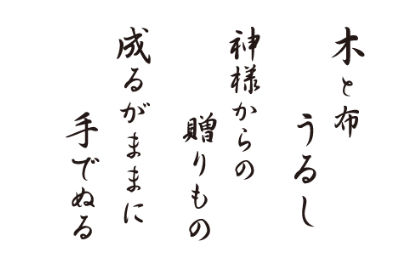 木と布
うるし
神様からの
贈りもの
成るがままに
手でぬる